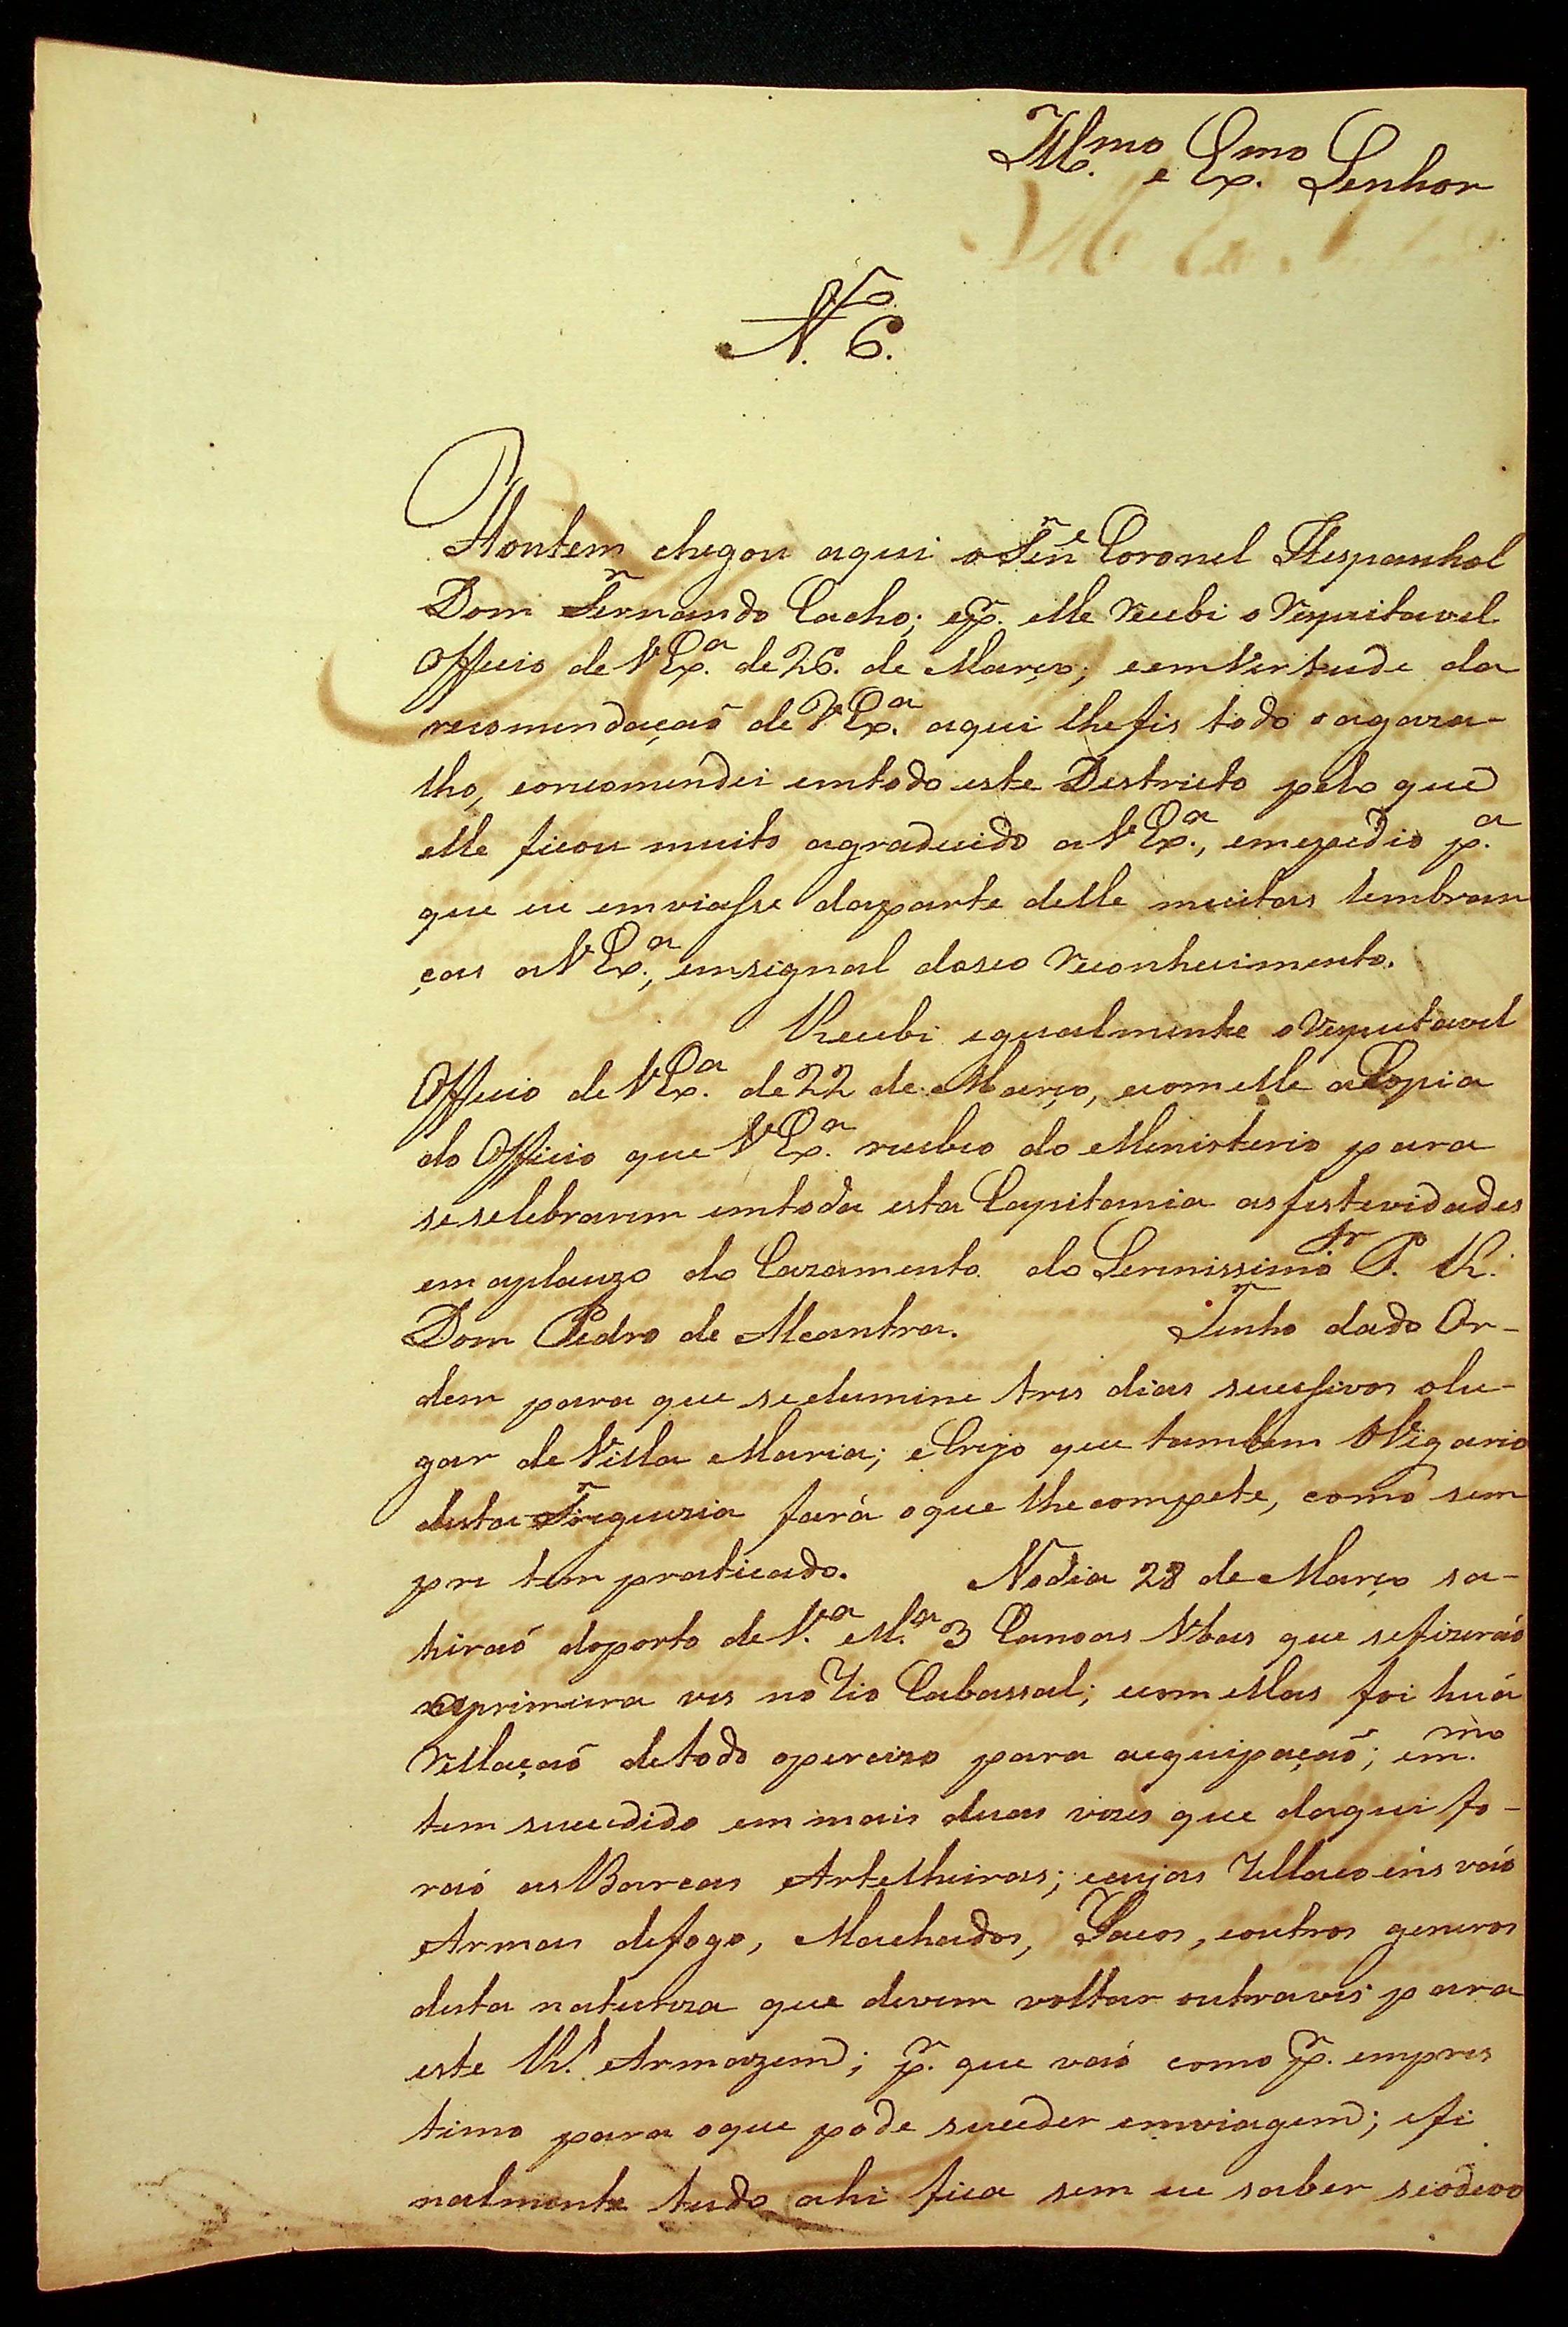 Ill.mo e Ex.mo Senhor
N.o 6.
Hontem chegou aqui o Ten.e Coronel Hespanhol
Dom Fernando Cacho; e p.r elle recebi o respeitavel
Officio de V Ex.a de 26. de Março; e em Virtude da
recomendaçaõ de V Ex.a aqui lhe fis todo o agaza-
lho, e o recomendei em todo este Destricto pelo que
elle ficou muito agradecido a V Ex.a, e me pedio p.a
que eu emviasse da parte delle muitas lembran
ças a V Ex.a, em signal do seo reconhecimento.
Recebi igualmente o respeitavel
Officio de V Ex.a de 22 de Março, e com elle a Copia
do Officio que V Ex.a recebeo do Menisterio para
se selebrarem em toda esta Capitania as festividades
em aplauzo do Cazamento do Serenissimo Sr P. R.
Dom Pedro de Alcantra. Tenho dado Or-
dem para que se elumine tres dias sucessivos o lu-
gar de Villa Maria; e Creio que tambem o Vigario
desta Freguezia fará o que lhe compete, como sem
pre tem praticado. No dia 28 de Março sa-
hiraõ do porto de V.a M.a 3 Canoas Ubas que se fizeraõ
a primeira ves no rio Cabassal; e com ellas foi huã
rellaçaõ de todo o percizo para a equipaçaõ; e o m.mo
tem sucedido em mais duas vezes que daqui fo-
raõ as Barcas Artelheiras; e cujas rellacoeis vaõ
Armas de fogo, Machados, Sacos, e outros generos
desta natureza que devem voltar outra ves para
este R.l Armazem; p.r que vaõ como p.r empres
timo para o que pode suceder em viagem; e fi
nalmente tudo ahi fica sem eu saber se o devo